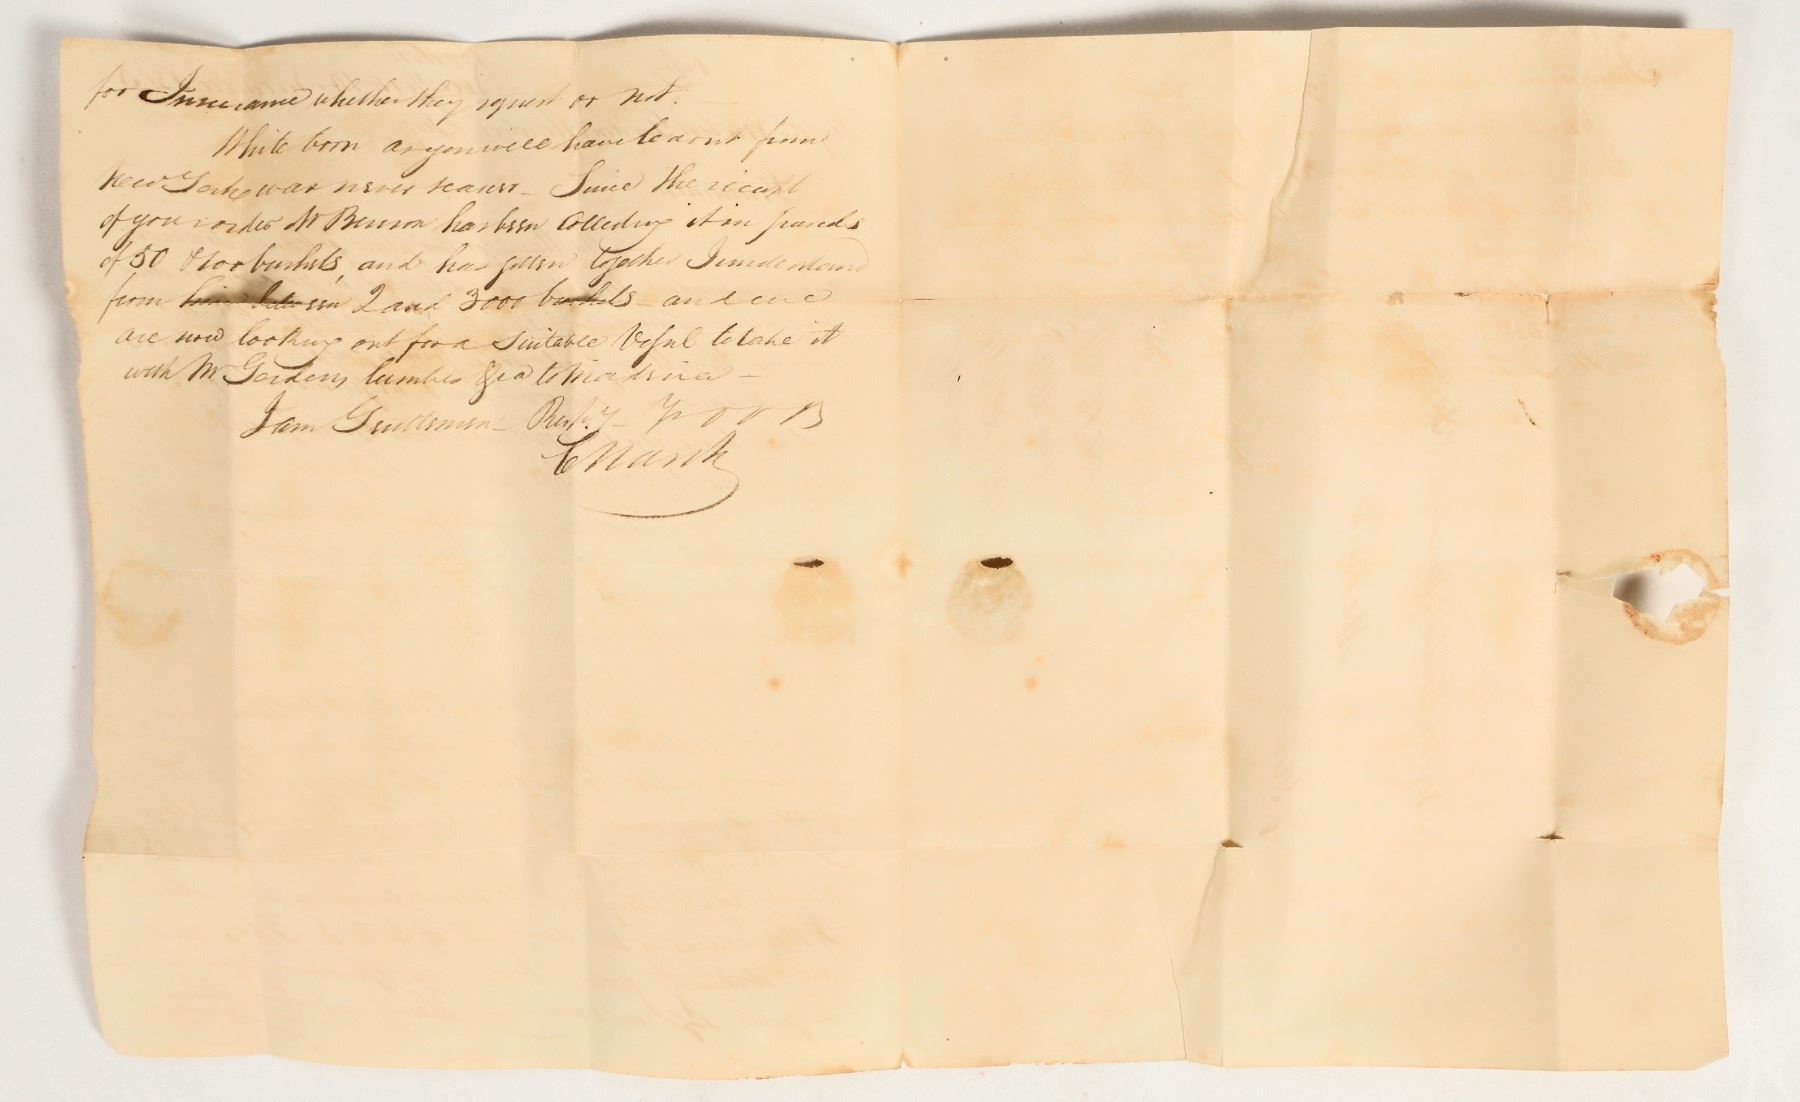 for Insurance whether they request or not. —
White Corn as you will have learnt from
New York was never scarcer — Since the receipt
of your order Mr Benson has been Collecting it in parcels
of 50 & 100 bushels, and has gotten together I understand
from him between 2 and 3000 bushels — and we
are now looking out for a suitable Vessel to take it
with Mr Gordons lumber &ca to Madeira —
I am Gentlemen — Respy — Yr O